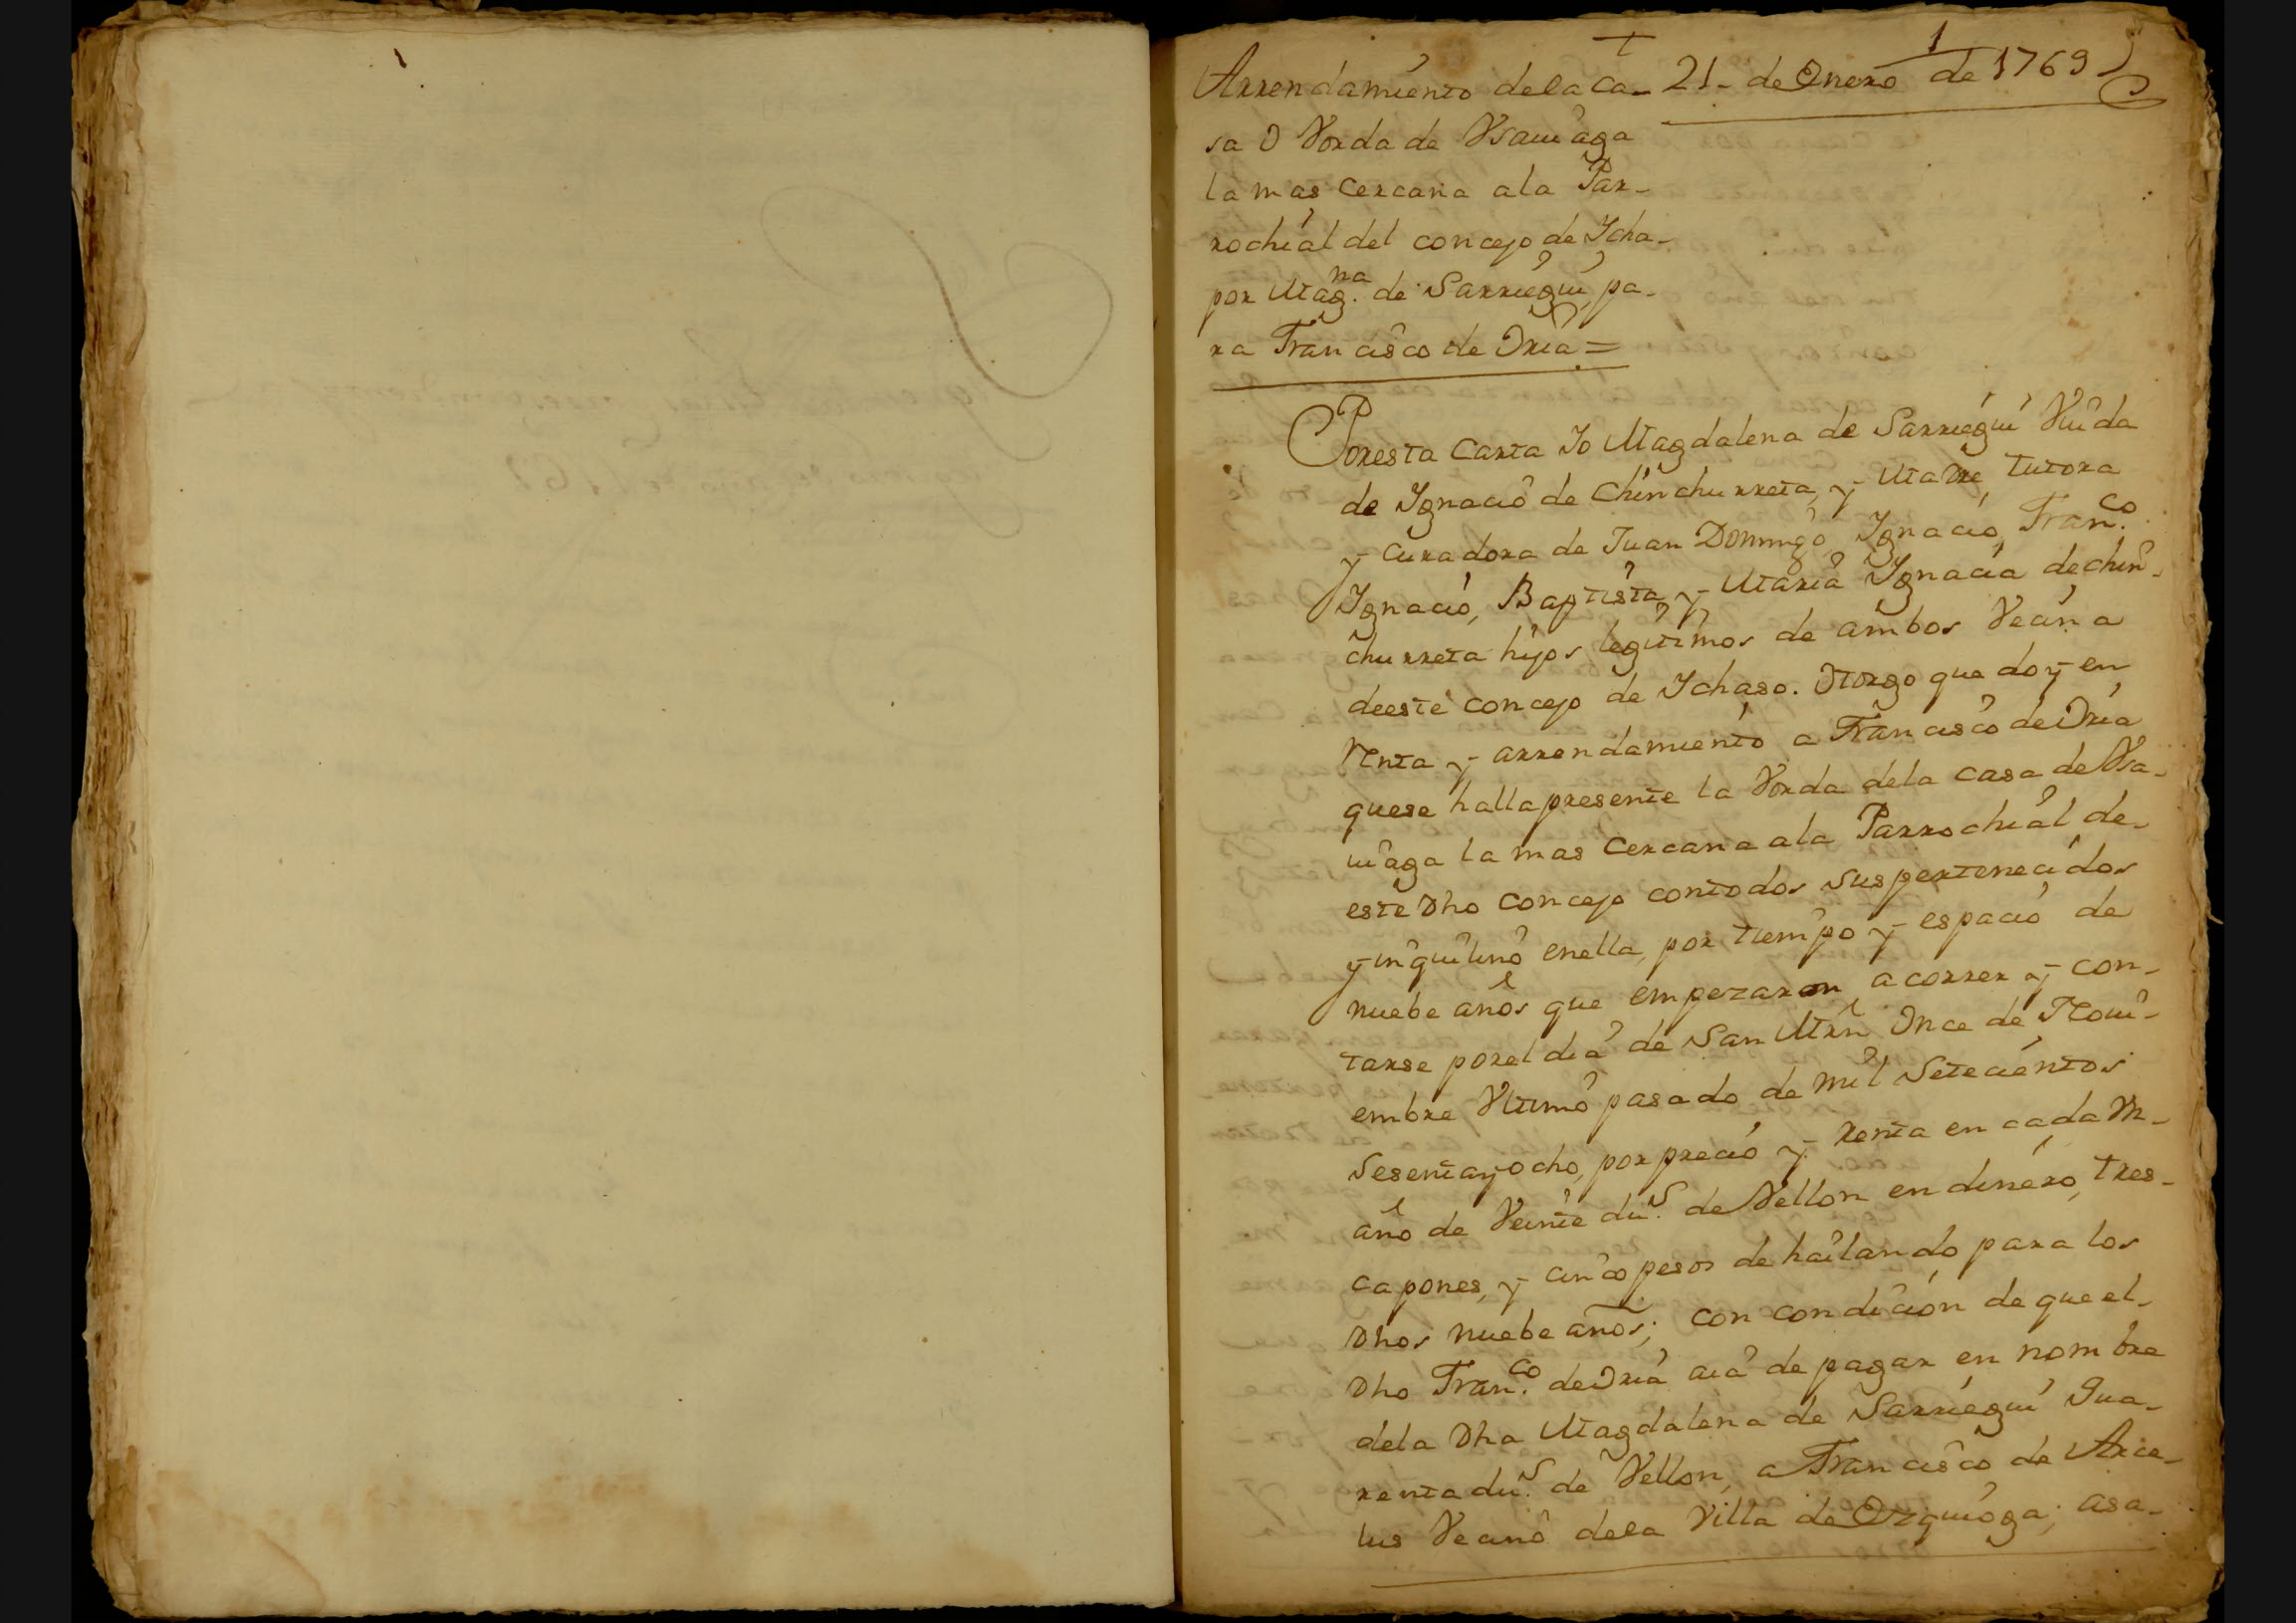 1
Arrendamiento dela Ca- 21- de Enero de 1769
sa O Vorda de Vsauiaga
la mas Cercana ala Par-
rochial del concejo de Ycha-
por Mag.na de Sarriegui, pa-
ra Francisco de Oria =
Poresta Carta Io Magdalena de Sarriegui Viuda
de Ygnacio de Chinchurreta, y Madre tutora
y Curadora de Juan Domingo, Ygnacio, Fran.co
Ygnacio, Baptista, y Maria Ygnacia de chin-
churreta hijos legitimos de ambos Vecina
deeste concejo de Ychaso. Otorgo que doy en
Renta y arrendamiento a Francisco de Oria
quese halla presente la Vorda dela casa de Vsa-
uiaga la mas Cercana ala Parrochial de-
este Dho Concejo contodos sus pertenecidos
y inquilino enella, por tiempo y espacio de
nuebe años que empezaron a correr y con-
tarse porel dia de San Mrñ Once de Noui-
embre Vltimo pasado de mil Setecientos
Sesentayocho, por precio y Renta en cada vn
año de Veinte du.s de Vellon en dinero, tres-
capones, y cinco pesos de hailando para los
Dhos nuebe años; con condicion de que el-
Dho Fran.co de Oria aia de pagar en nombre
dela Dha Magdalena de Sarriegui Qua-
renta du.s de Vellon, a Francisco de Arce-
lus Vecino dela Villa de Ezquioga; asa-